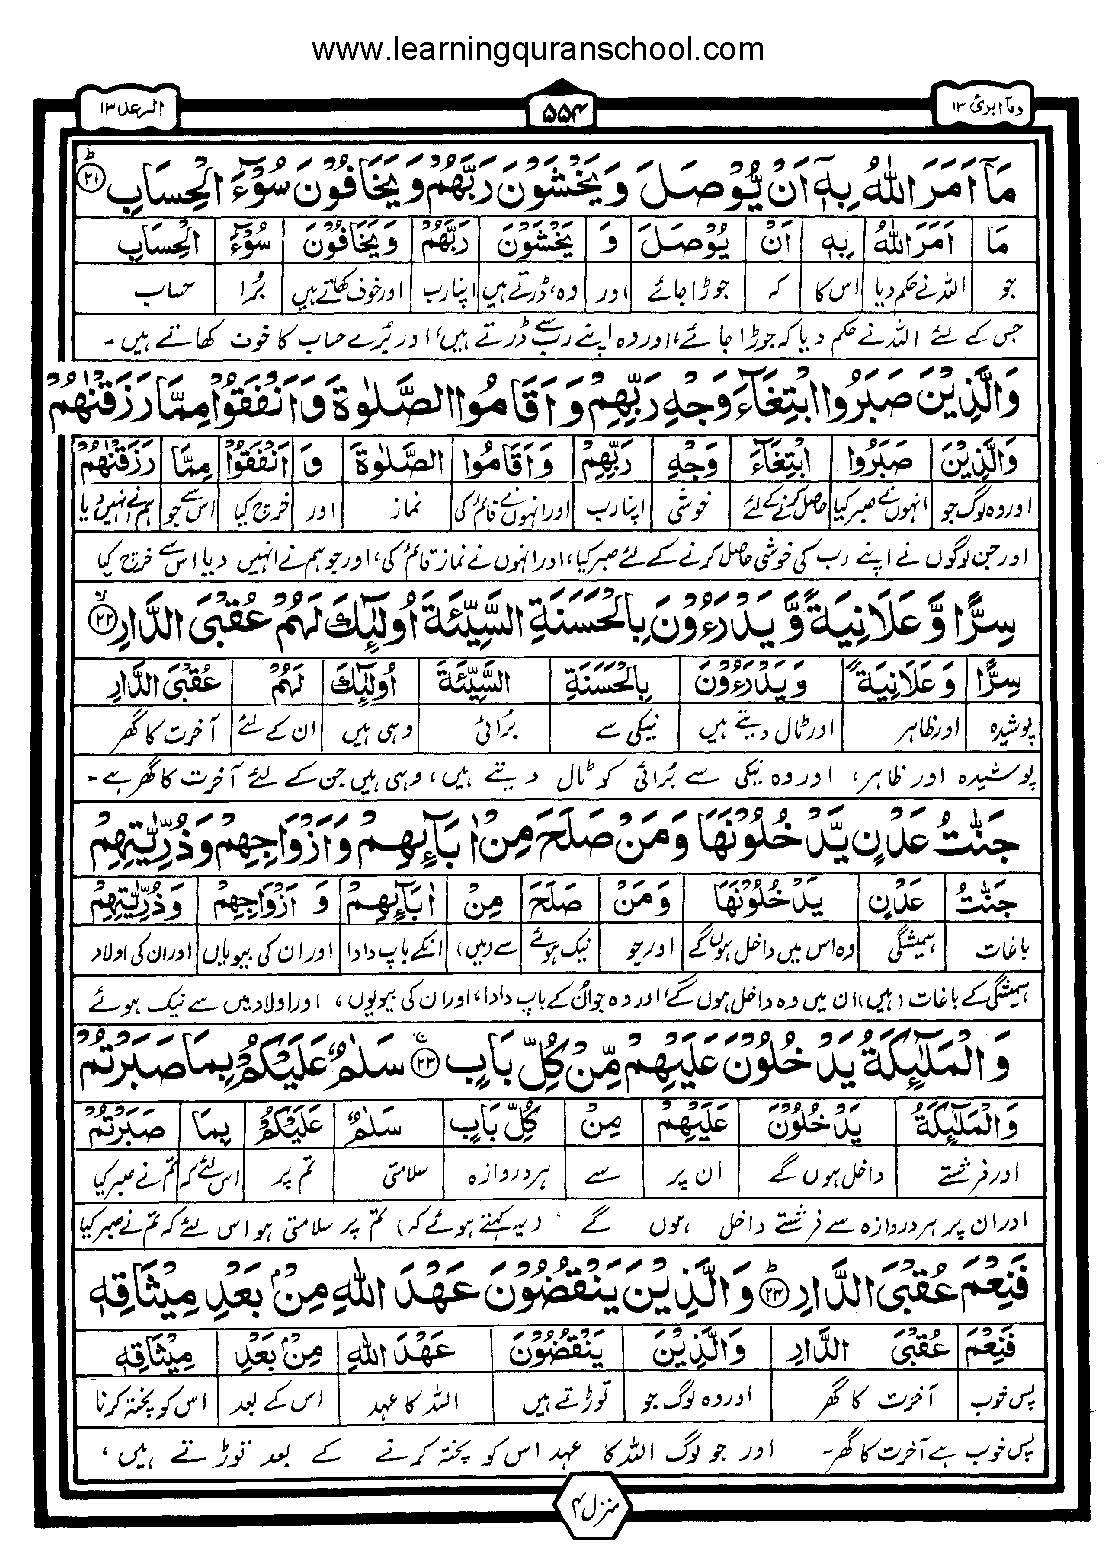 www.learningquranschool.com
وما ابرئ ۱۳
۵۵۴
الرعد ۱۳
مَاۤ اَمَرَ اللّٰهُ بِهٖۤ اَنْ يُّوْصَلَ وَيَخْشَوْنَ رَبَّهُمْ وَيَخَافُوْنَ سُوْٓءَ الْحِسَابِ ۲۱
مَاۤ اَمَرَ اللّٰهُ بِهٖۤ اَنْ يُّوْصَلَ وَ يَخْشَوْنَ رَبَّهُمْ وَيَخَافُوْنَ سُوْٓءَ الْحِسَابِ
جو اللہ نے حکم دیا اس کا کہ جوڑا جائے اور وہ ڈرتے ہیں اپنا رب اور خوف کھاتے ہیں بُرا حساب
جس کے لئے اللہ نے حکم دیا کہ جوڑا جائے، اور وہ اپنے رب سے ڈرتے ہیں، اور بُرے حساب کا خوف کھاتے ہیں۔
وَالَّذِيْنَ صَبَرُوا ابْتِغَآءَ وَجْهِ رَبِّهِمْ وَاَقَامُوا الصَّلٰوةَ وَاَنْفَقُوْا مِمَّا رَزَقْنٰهُمْ
وَالَّذِيْنَ صَبَرُوا ابْتِغَآءَ وَجْهِ رَبِّهِمْ وَاَقَامُوا الصَّلٰوةَ وَ اَنْفَقُوْا مِمَّا رَزَقْنٰهُمْ
اور وہ لوگ جو انہوں نے صبر کیا حاصل کرنے کے لئے خوشی اپنا رب اور انہوں نے قائم کی نماز اور خرچ کیا اس سے جو ہم نے انہیں دیا
اور جن لوگوں نے اپنے رب کی خوشی حاصل کرنے کے لئے صبر کیا، اور انہوں نے نماز قائم کی، اور جو ہم نے انہیں دیا اس سے خرچ کیا
سِرًّا وَّعَلَانِيَةً وَّيَدْرَءُوْنَ بِالْحَسَنَةِ السَّيِّئَةَ اُولٰٓئِكَ لَهُمْ عُقْبَى الدَّارِ ۲۲
سِرًّا وَّعَلَانِيَةً وَّيَدْرَءُوْنَ بِالْحَسَنَةِ السَّيِّئَةَ اُولٰٓئِكَ لَهُمْ عُقْبَى الدَّارِ
پوشیدہ اور ظاہر اور ٹال دیتے ہیں نیکی سے بُرائی وہی ہیں ان کے لئے آخرت کا گھر
پوشیدہ اور ظاہر، اور وہ نیکی سے بُرائی کو ٹال دیتے ہیں، وہی ہیں جن کے لئے آخرت کا گھر ہے۔
جَنّٰتُ عَدْنٍ يَّدْخُلُوْنَهَا وَمَنْ صَلَحَ مِنْ اٰبَآئِهِمْ وَاَزْوَاجِهِمْ وَذُرِّيّٰتِهِمْ
جَنّٰتُ عَدْنٍ يَّدْخُلُوْنَهَا وَمَنْ صَلَحَ مِنْ اٰبَآئِهِمْ وَ اَزْوَاجِهِمْ وَذُرِّيّٰتِهِمْ
باغات ہمیشگی وہ اس میں داخل ہوں گے اور جو نیک ہوئے سے (میں) انکے باپ دادا اور ان کی بیویاں اور ان کی اولاد
ہمیشگی کے باغات (ہیں) ان میں وہ داخل ہوں گے، اور وہ جو ان کے باپ دادا، اور ان کی بیویوں، اور اولاد میں سے نیک ہوئے
وَالْمَلٰٓئِكَةُ يَدْخُلُوْنَ عَلَيْهِمْ مِّنْ كُلِّ بَابٍ ۲۳ سَلٰمٌ عَلَيْكُمْ بِمَا صَبَرْتُمْ
وَالْمَلٰٓئِكَةُ يَدْخُلُوْنَ عَلَيْهِمْ مِنْ كُلِّ بَابٍ سَلٰمٌ عَلَيْكُمْ بِمَا صَبَرْتُمْ
اور فرشتے داخل ہوں گے ان پر سے ہر دروازہ سلامتی تم پر اس لئے کہ تم نے صبر کیا
اور ان پر ہر دروازہ سے فرشتے داخل ہوں گے (یہ کہتے ہوئے کہ) تم پر سلامتی ہو اس لئے کہ تم نے صبر کیا
فَنِعْمَ عُقْبَى الدَّارِ ۲۴ وَالَّذِيْنَ يَنْقُضُوْنَ عَهْدَ اللّٰهِ مِنْۢ بَعْدِ مِيْثَاقِهٖ
فَنِعْمَ عُقْبَى الدَّارِ وَالَّذِيْنَ يَنْقُضُوْنَ عَهْدَ اللّٰهِ مِنْۢ بَعْدِ مِيْثَاقِهٖ
پس خوب آخرت کا گھر اور وہ لوگ جو توڑتے ہیں اللہ کا عہد اس کے بعد اس کو پختہ کرنا
پس خوب ہے آخرت کا گھر۔ اور جو لوگ اللہ کا عہد اس کو پختہ کرنے کے بعد توڑتے ہیں،
منزل ۳